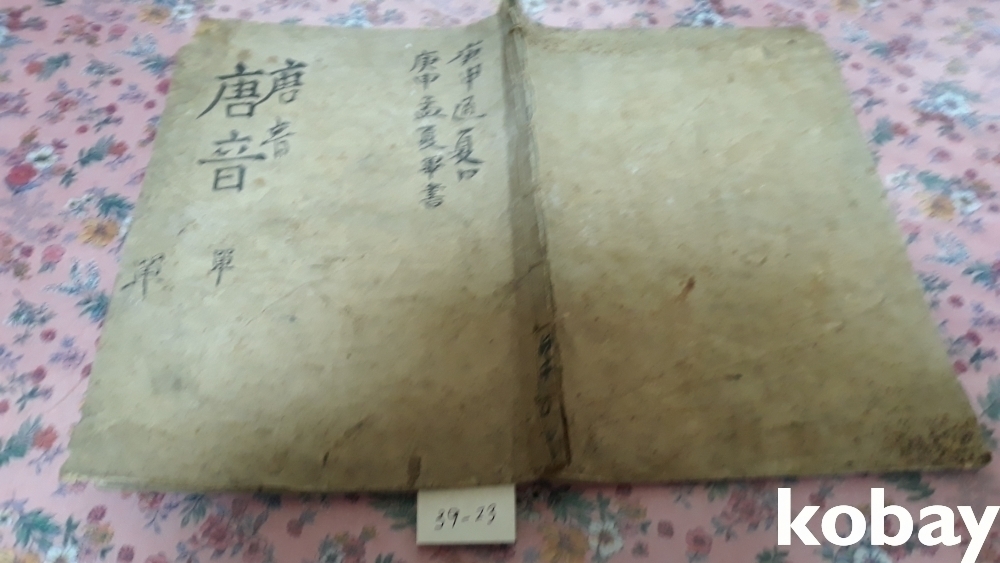 唐音
唐音
單
單
庚申孟夏畢書
庚申
夏
39-23
kobay